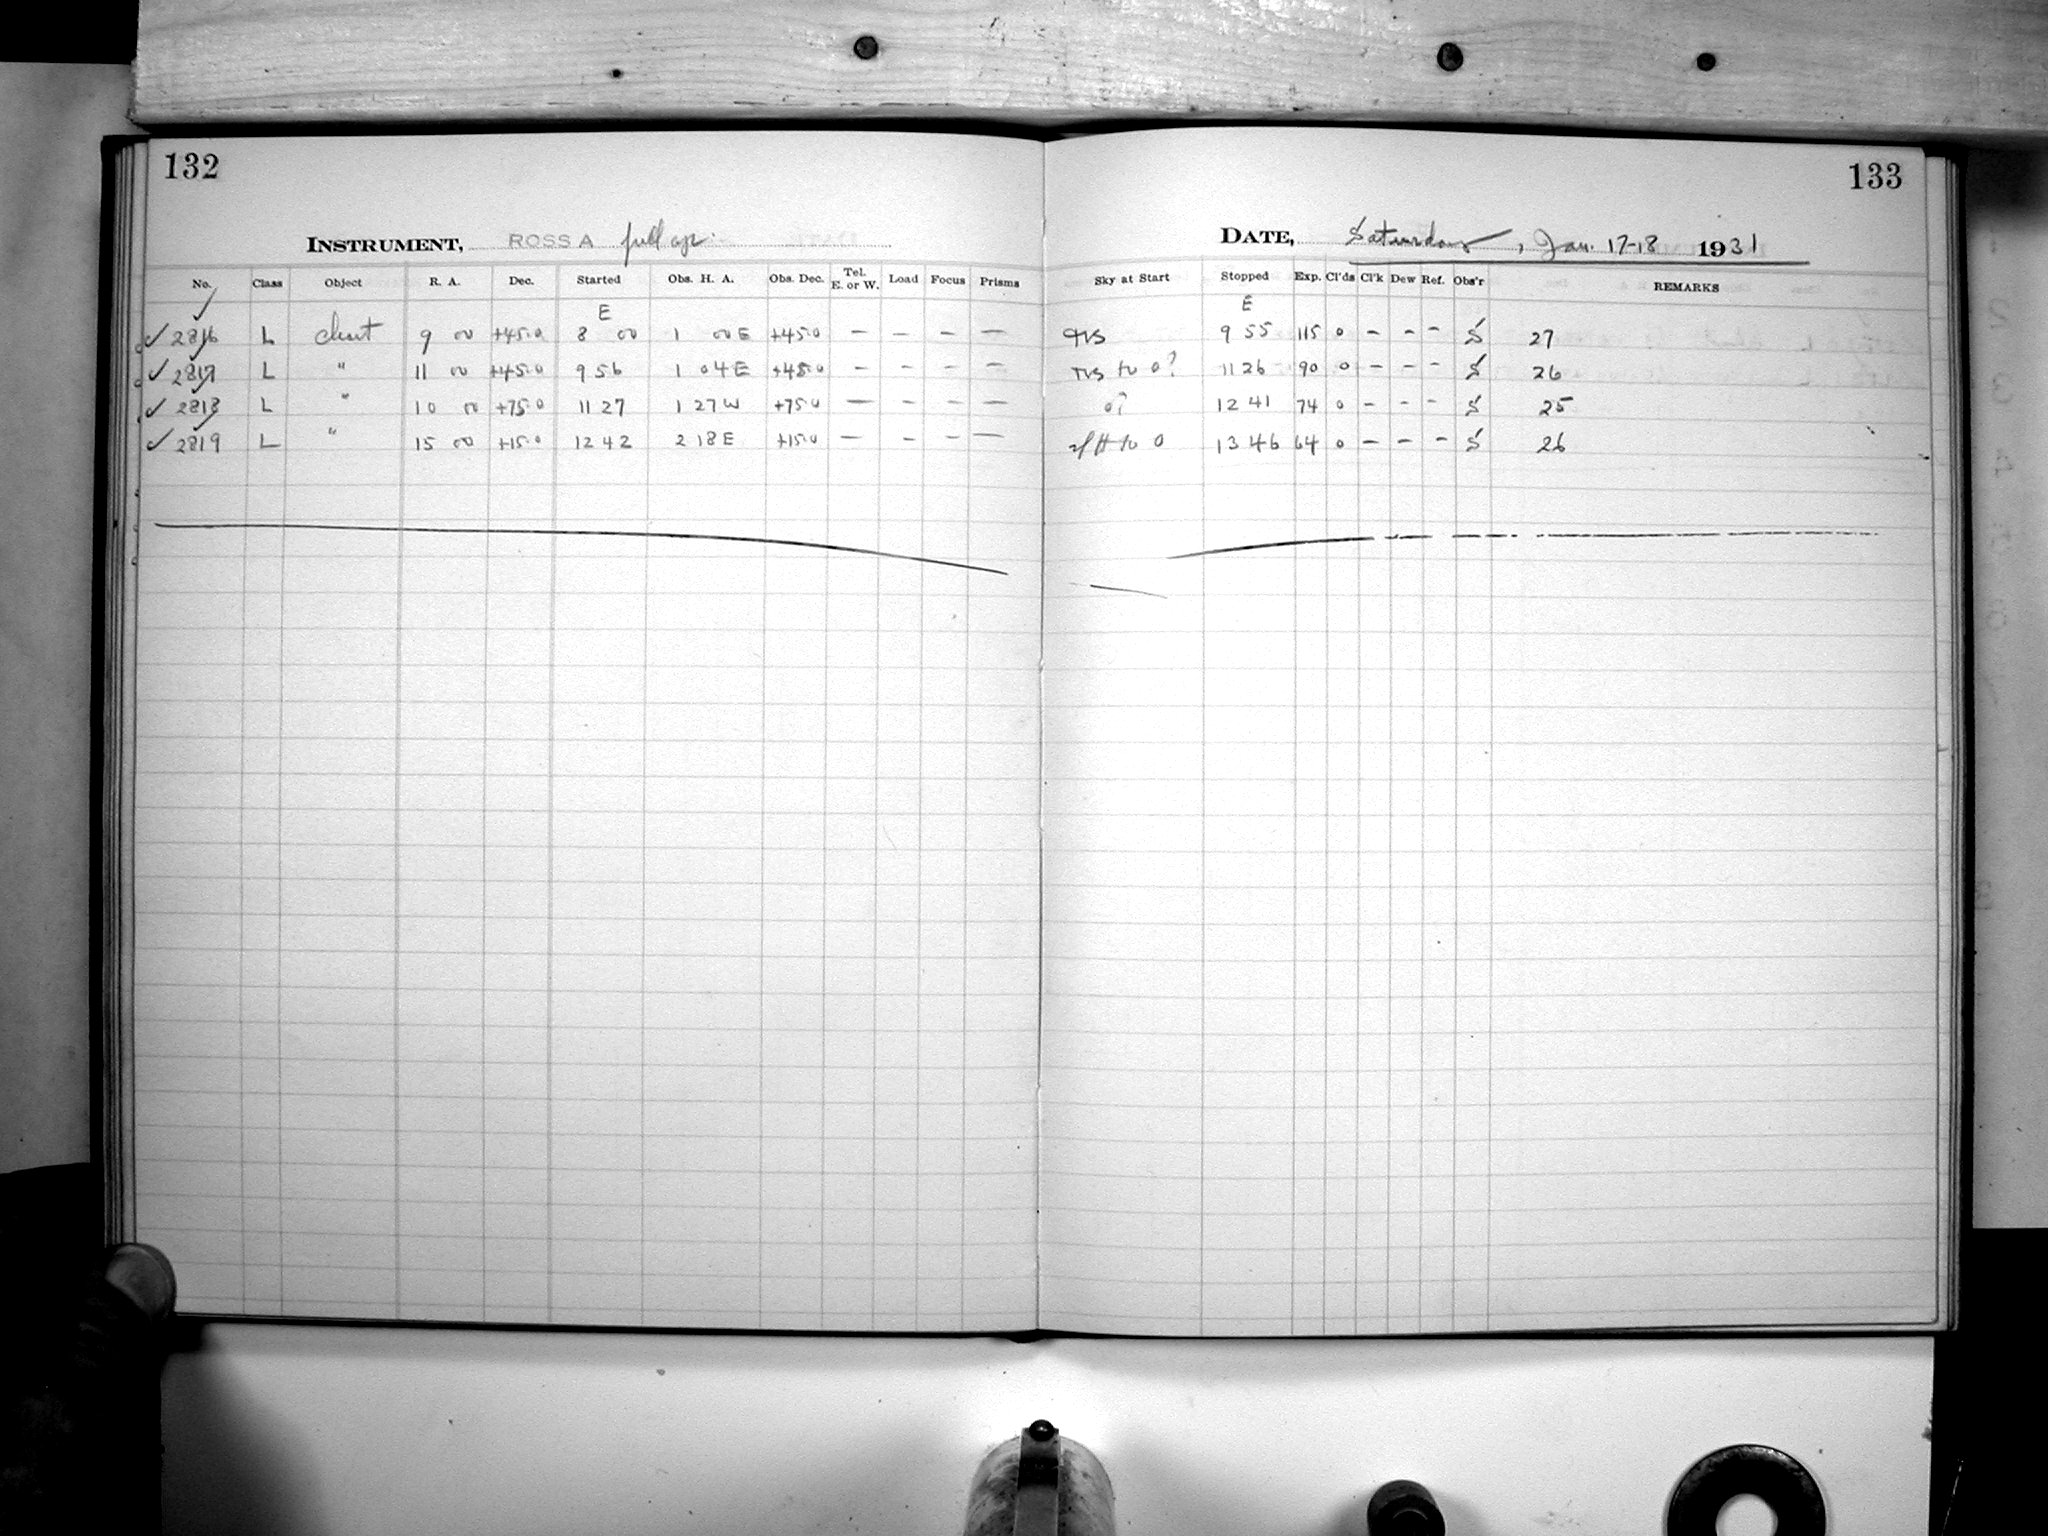 132
INSTRUMENT, ROSS A full ap.
No. Class Object R. A. Dec. Started Obs. H. A. Obs. Dec. Tel. E. or W. Load Focus Prisms
E
✓ 2816 L chart 9 00 +45.0 8 00 1 00 E +45.0 — — — —
✓ 2817 L " 11 00 +45.0 9 56 1 04 E +45.0 — — — —
✓ 2818 L " 10 00 +75.0 11 27 1 27 W +75.0 — — — —
✓ 2819 L " 15 00 +15.0 12 42 2 18 E +15.0 — — — —
133
DATE, Saturday, Jan. 17-18 1931
Sky at Start Stopped Exp. Cl'ds Cl'k Dew Ref. Obs'r REMARKS
E
9 55 115 0 — — — S 27
to 0? 11 26 90 0 — — — S 26
0? 12 41 74 0 — — — S 25
to 0 13 46 64 0 — — — S 26